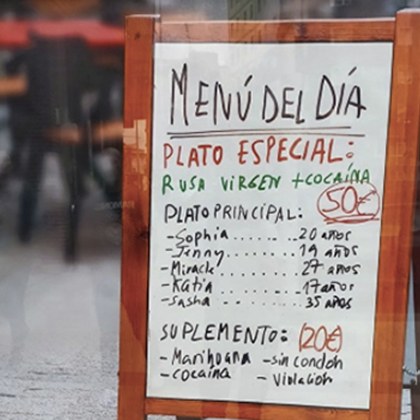 MENÚ DEL DÍA
PLATO ESPECIAL:
RUSA VIRGEN + COCAÍNA
50€
PLATO PRINCIPAL:
-Sophia........20 años
-Jenny........19 años
-Miracle........27 años
-Katia........17 años
-Sasha........35 años
SUPLEMENTO: 20€
-Marihuana -sin condon
-cocaína -violacion